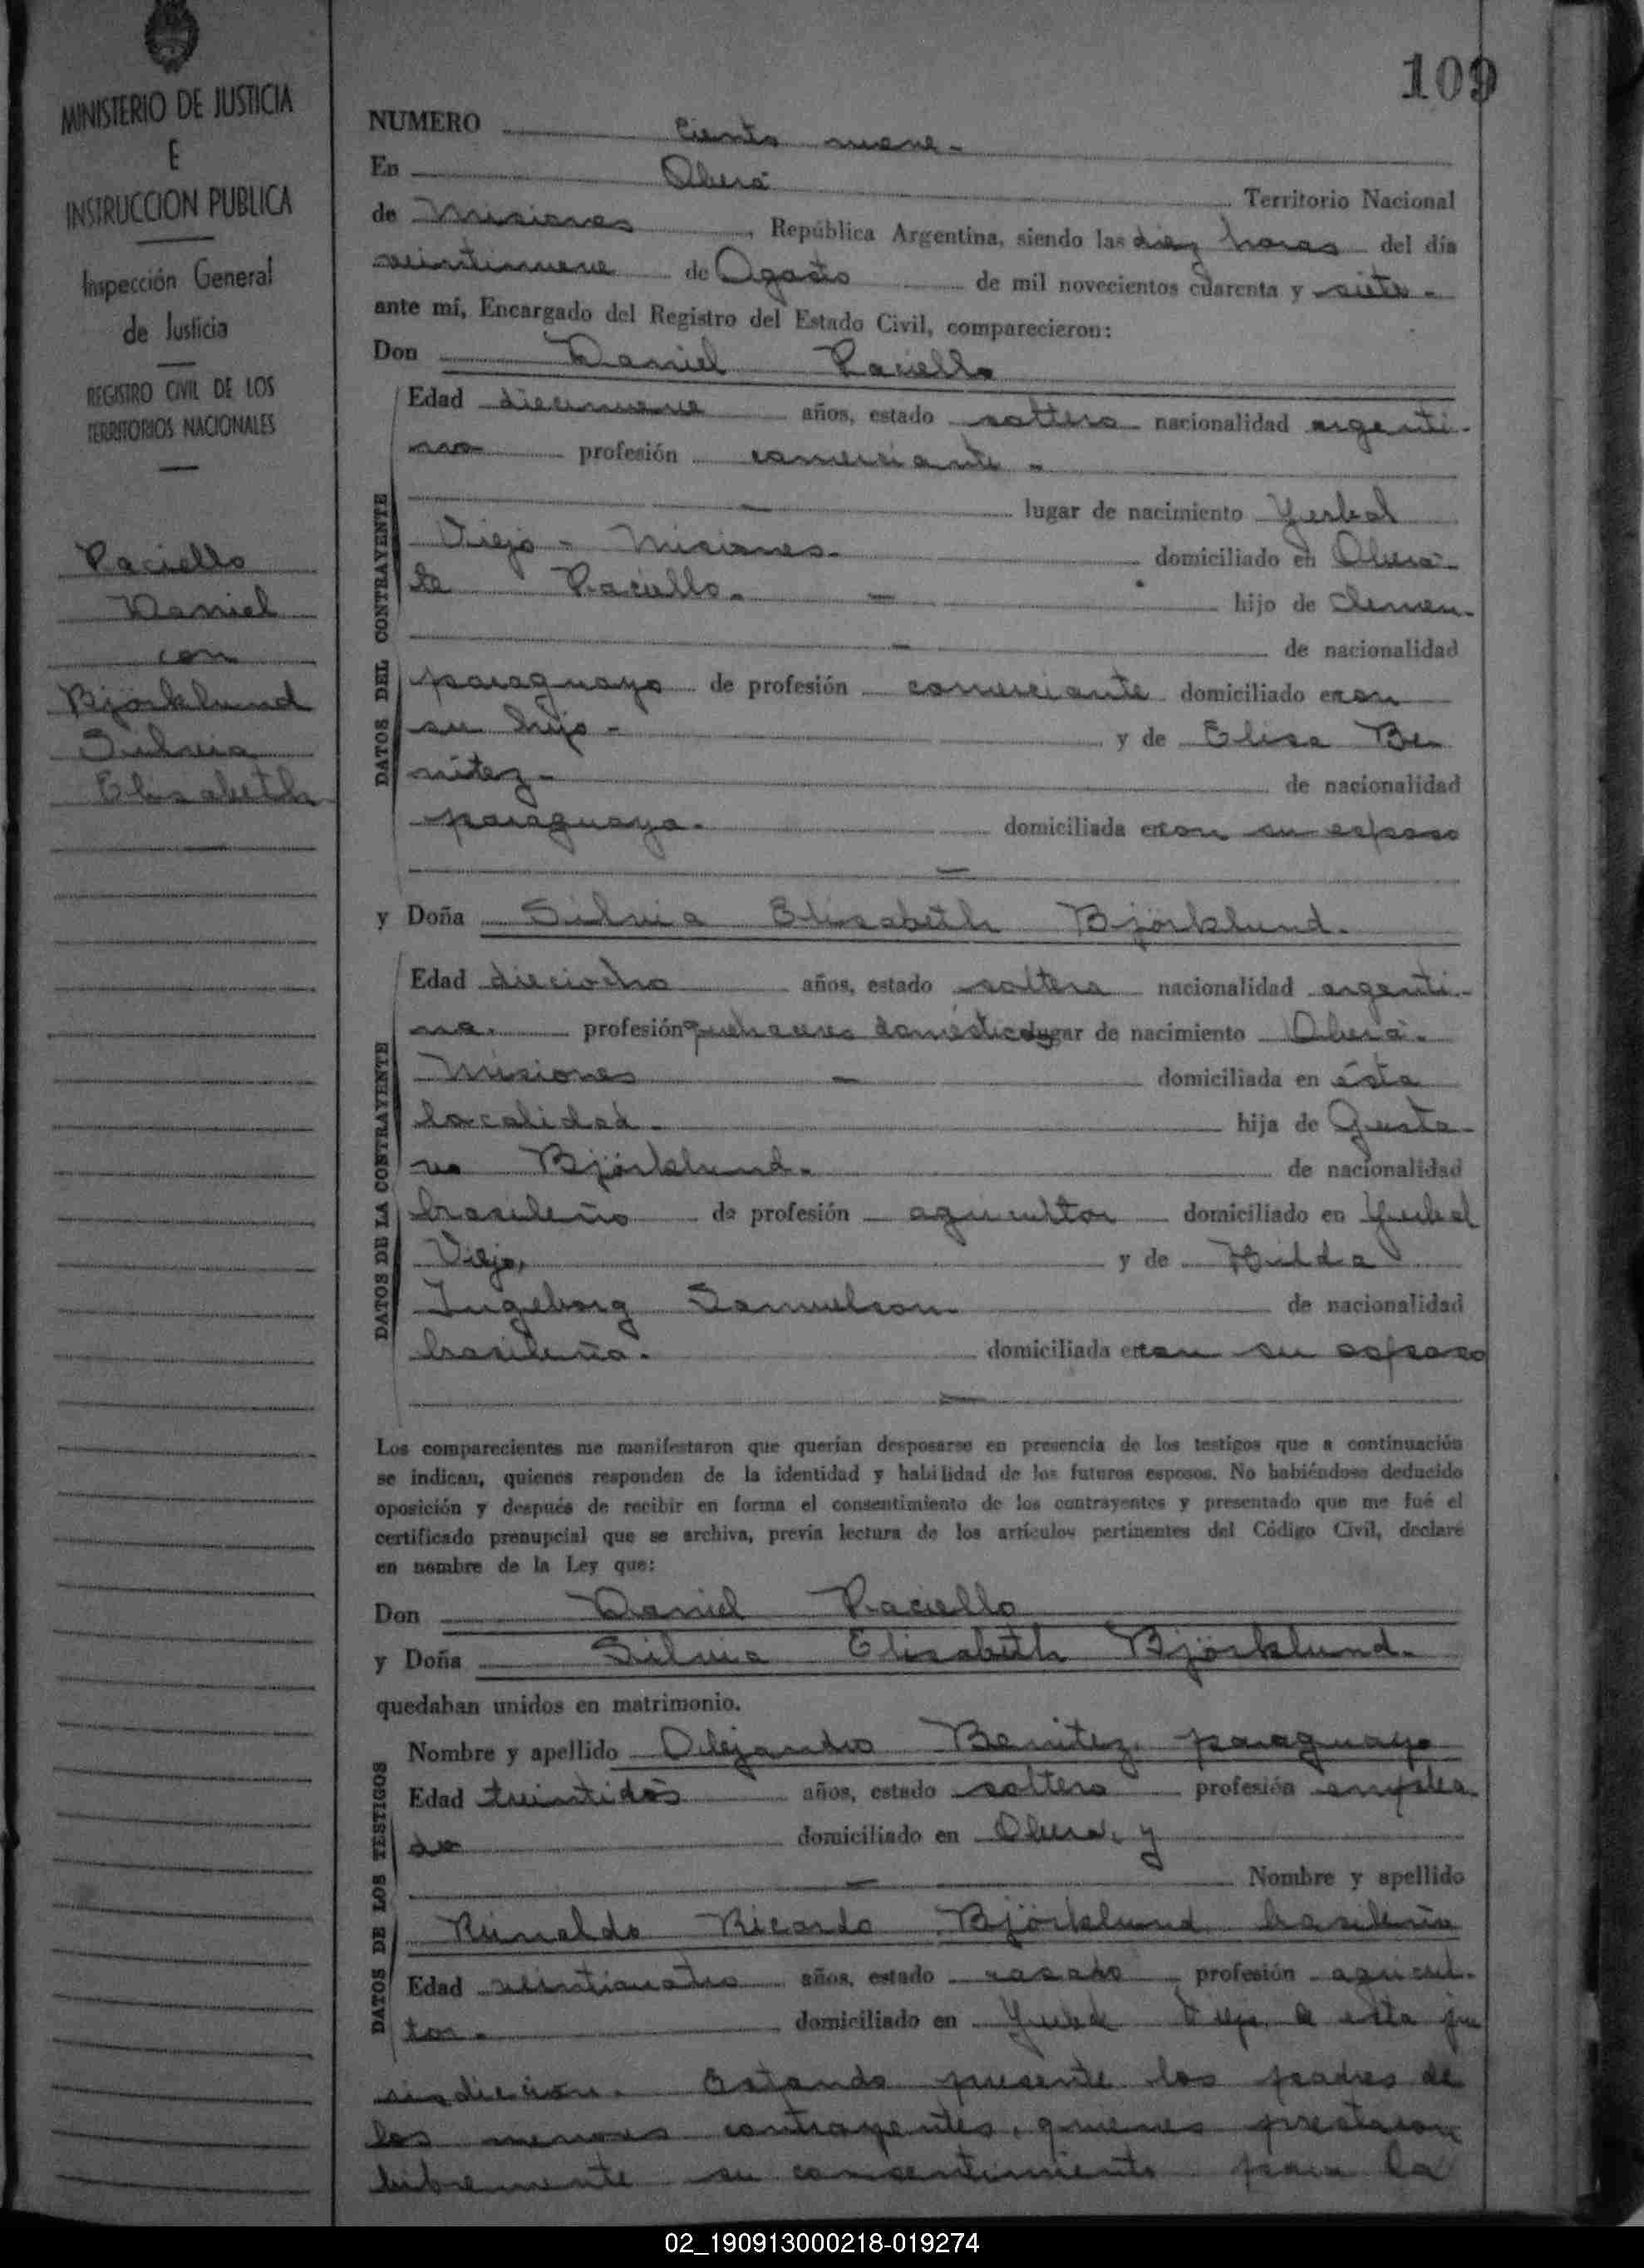 MINISTERIO DE JUSTICIA
E
INSTRUCCION PUBLICA
Inspección General
de Justicia
REGISTRO CIVIL DE LOS
TERRITORIOS NACIONALES
Paciello
Daniel
con
Björklund
Silvia
Elisabeth
109
NUMERO Ciento nueve.-
En Oberá Territorio Nacional
de Misiones, República Argentina, siendo las diez horas del día
veintinueve de Agosto de mil novecientos cuarenta y siete.-
ante mí, Encargado del Registro del Estado Civil, comparecieron:
Don Daniel Paciello
DATOS DEL CONTRAYENTE
Edad diecinueve años, estado soltero nacionalidad argenti-
no profesión comerciante -
lugar de nacimiento Yerbal
Viejo - Misiones.- domiciliado en Oberá.-
te Paciello.- hijo de Clemen-
de nacionalidad
paraguayo de profesión comerciante domiciliado en con
su hijo - y de Elisa Be
nitez.- de nacionalidad
paraguaya.- domiciliada en con su esposo
y Doña Silvia Elisabeth Björklund.-
DATOS DE LA CONTRAYENTE
Edad dieciocho años, estado soltera nacionalidad argenti-
na. profesión quehaceres domésticos lugar de nacimiento Oberá.-
Misiones domiciliada en ésta
localidad.- hija de Gusta-
vo Björklund.- de nacionalidad
brasileño de profesión agricultor domiciliado en Yerbal
Viejo, y de Hilda
Ingeborg Samuelson de nacionalidad
brasileña.- domiciliada en con su esposo
Los comparecientes me manifestaron que querían desposarse en presencia de los testigos que a continuación
se indican, quienes responden de la identidad y habilidad de los futuros esposos. No habiéndose deducido
oposición y después de recibir en forma el consentimiento de los contrayentes y presentado que me fué el
certificado prenupcial que se archiva, previa lectura de los artículos pertinentes del Código Civil, declaré
en nombre de la Ley que:
Don Daniel Paciello
y Doña Silvia Elisabeth Björklund.-
quedaban unidos en matrimonio.
DATOS DE LOS TESTIGOS
Nombre y apellido Alejandro Benitez, paraguayo
Edad treintidós años, estado soltero profesión emplea-
do domiciliado en Oberá, y
Nombre y apellido
Reinaldo Ricardo Björklund brasileño
Edad veinticuatro años, estado casado profesión agricul-
tor.- domiciliado en Yerbal Viejo, de esta ju
risdicción.- Estando presente los padres de
los menores contrayentes, quienes prestaron
libremente su consentimiento para la
02_190913000218-019274